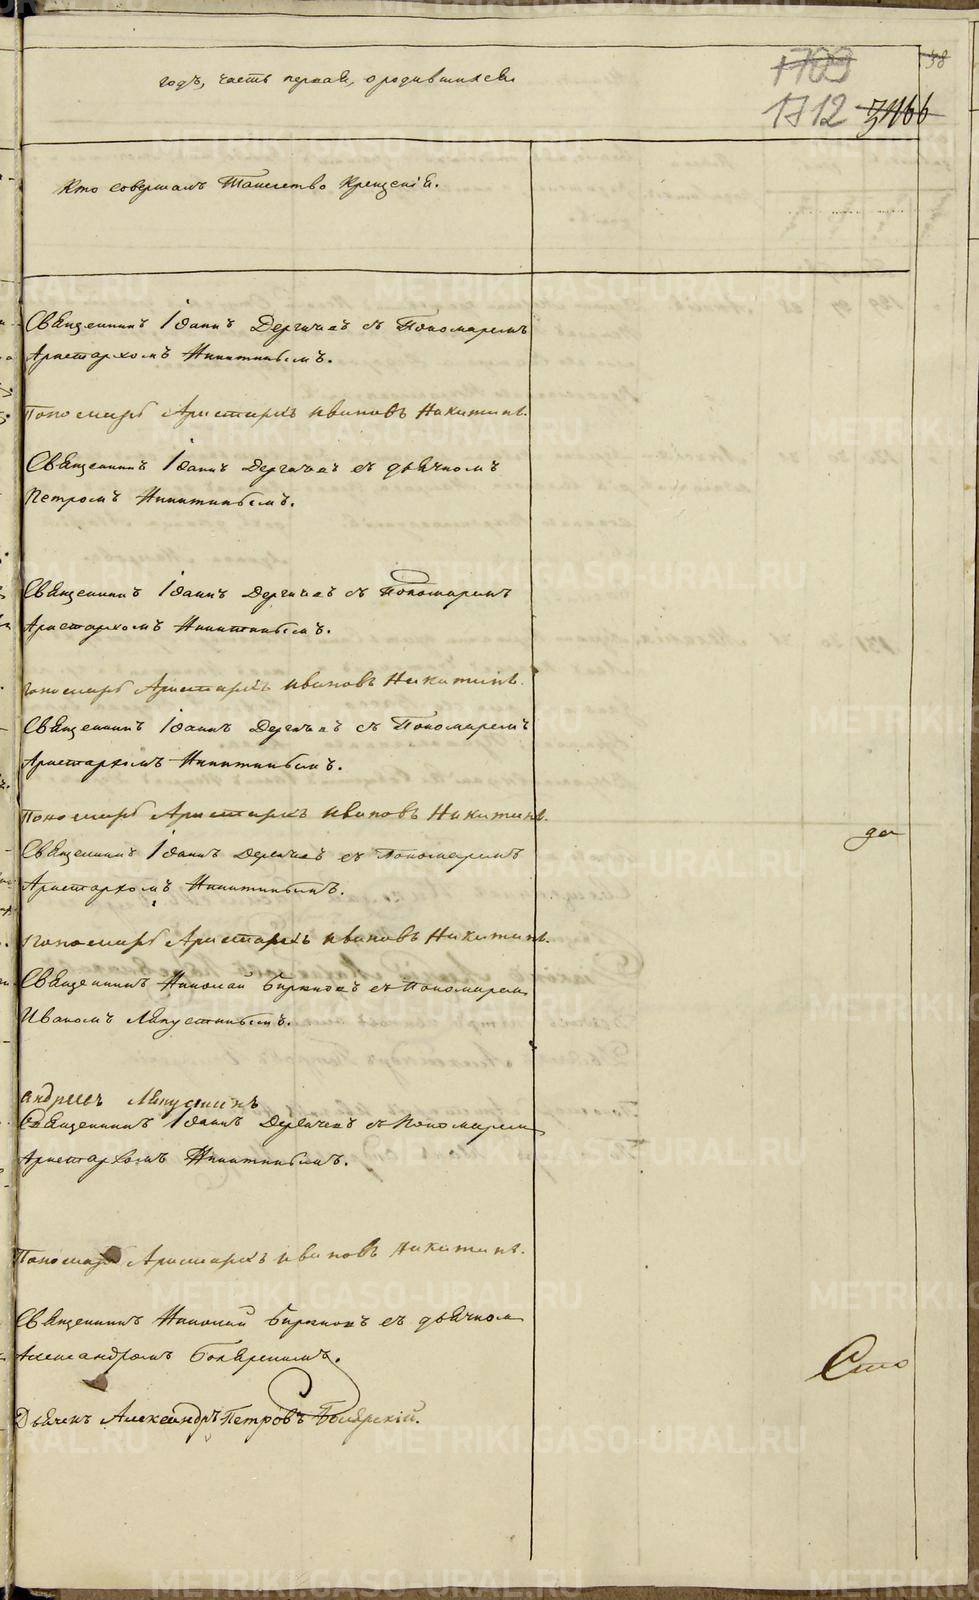 годъ, часть первая, о родившихся.
1709
38
1712 3466
Кто совершалъ Таинство Крещенія.
Священникъ Іоаннъ Дергачевъ съ Пономаремъ
Аристархомъ Никитинымъ.
Пономарь Аристархъ Ивановъ Никитинъ.
Священникъ Іоаннъ Дергачевъ съ дьячкомъ
Петромъ Никитинымъ.
Священникъ Іоаннъ Дергачевъ съ Пономаремъ
Аристархомъ Никитинымъ.
Пономарь Аристархъ Ивановъ Никитинъ.
Священникъ Іоаннъ Дергачевъ съ Пономаремъ
Аристархомъ Никитинымъ.
Пономарь Аристархъ Ивановъ Никитинъ.
да
Священникъ Іоаннъ Дергачевъ съ Пономаремъ
Аристархомъ Никитинымъ.
Пономарь Аристархъ Ивановъ Никитинъ.
Священникъ Николай Бирюковъ съ Пономарем
Иваномъ Ляпустинымъ.
Андреевъ Ляпустинъ
Священникъ Іоаннъ Дергачевъ съ Пономарем
Аристархомъ Никитинымъ.
Пономарь Аристархъ Ивановъ Никитинъ.
Священникъ Николай Бирюковъ съ дьячком
Александромъ Боярскимъ.
Сто
Дьячекъ Александръ Петровъ Боярскій.
METRIKI.GASO-URAL.RU